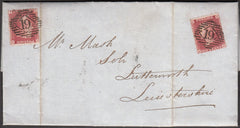 Mr. Mash
Soli
Lutterworth
Leicestershire
10